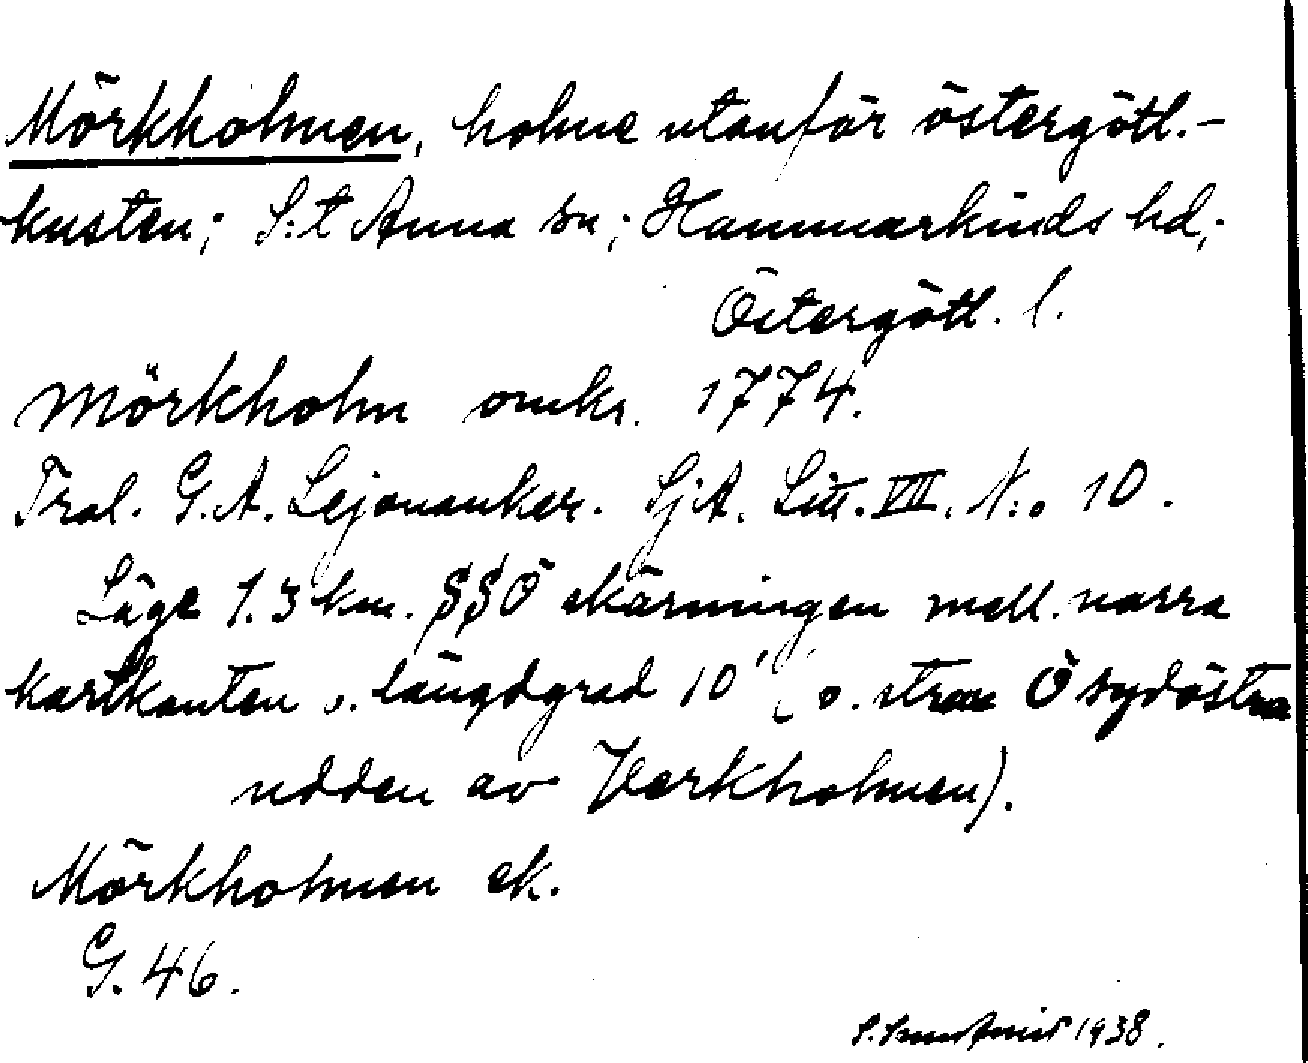 Mörkholmen, holme utanför östergötl.-
kusten; S:t Anna sn; Hammarkinds hd;
Östergötl. l.
Mörkholm omkr. 1774.
Tral. G.A. Lejonanker. SjA. Litt. VII. N:o 10.
Läge 1.3 km. SSÖ skärningen mell. norra
kartkanten o. längdgrad 10' (o. strax Ö sydöstra
udden av Verkholmen).
Mörkholmen ek.
G. 46.
1938.